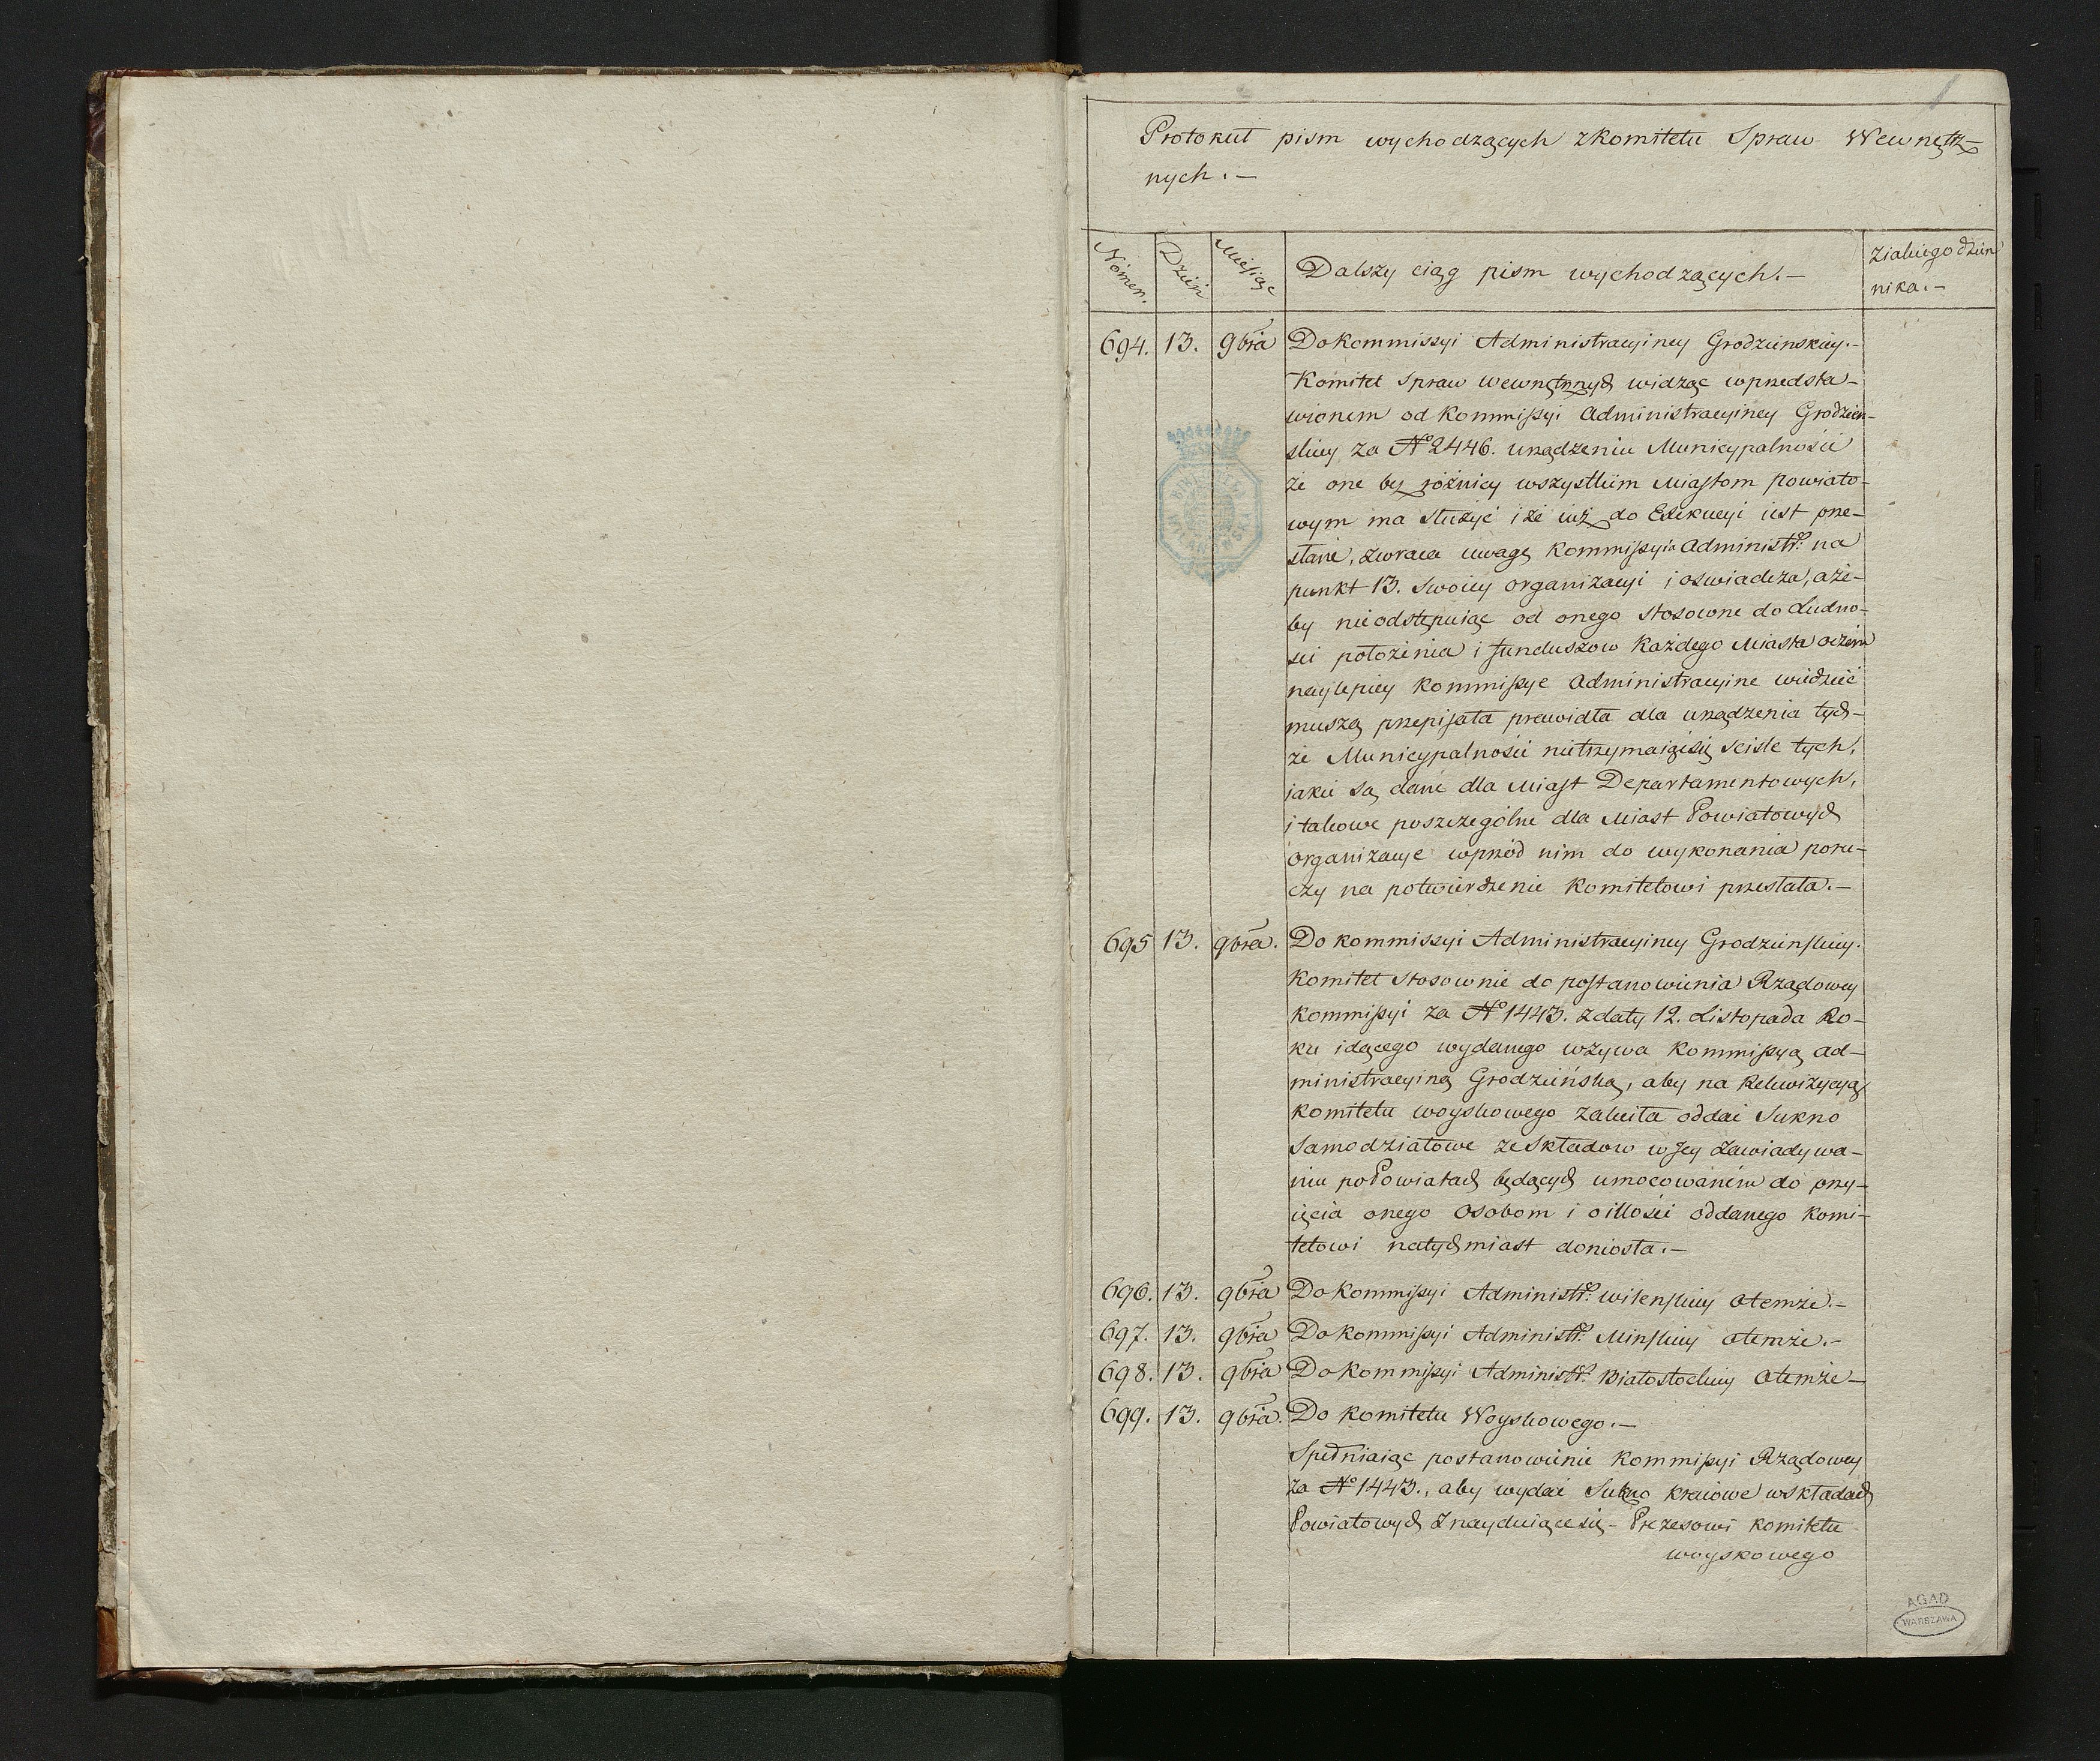 1
Protokuł pism wychodzących z Komitetu Spraw Wewnętrz-
nych.—
Nómer. Dzień Miesiąc Dalszy ciąg pism wychodzących.— Z iakiego dzien
nika.—
694. 13. 9bra Do Kommissyi Administracyiney Grodzienskiey.—
Komitet Spraw wewnętrznych widząc w przedsta-
wionem od Kommissyi Administracyiney Grodzien-
skiey za No 2446. urządzeniu Municypalności
że one bez różnicy wszystkim Miastom powiato-
wym ma służyć i że iuż do Exekucyi iest prze-
słane, zwraca uwagę Kommissyi Administr: na
punkt 13. swoiey organizacyi i oswiadcza, aże-
by nieodstępuiąc od onego stosowne do Ludno-
sci położenia i funduszow Każdego Miasta o czém
naylepiey Kommissye Administracyine wiedzieć
muszą przepisała prawidła dla urządzenia tych-
że Municypalności nietrzymaiąc się sciśle tych,
jakie są dane dla Miast Departamentowych,
i takowe poszczególne dla Miast Powiatowych
organizacye wprzód nim do wykonania poru-
czy na potwierdzenie Komitetowi przesłała.—
695 13. 9bra. Do Kommissyi Administracyiney Grodzienskiey.
Komitet stosownie do postanowienia Rządowey
Kommissyi za No 1443. z daty 12. Listopada Ro-
ku idącego wydanego wzywa Kommissyą Ad-
ministracyiną Grodzieńską, aby na Rekwizycyą
Komitetu woyskowego zaleciła oddać Sukno
Samodziałowe ze Składow w Jey zawiadywa-
niu po Powiatach będących umocowaném do przy-
ięcia onego osobom i o illości oddanego Komi-
tetowi natychmiast doniosła.—
696. 13. 9bra Do Kommissyi Administr: wilenskiey o temże.—
697. 13. 9bra Do Kommissyi Administr: Minskiey o temże.—
698. 13. 9bra Do Kommissyi Administr: Białostockiey o temże—
699. 13. 9bra. Do Komitetu Woyskowego.—
Spełniaiąc postanowienie Kommissyi Rządowey
za No 1443., aby wydać Sukno kraiowe w składach
Powiatowych znayduiące się - Prezesowi Komitetu
woyskowego
AGAD
WARSZAWA